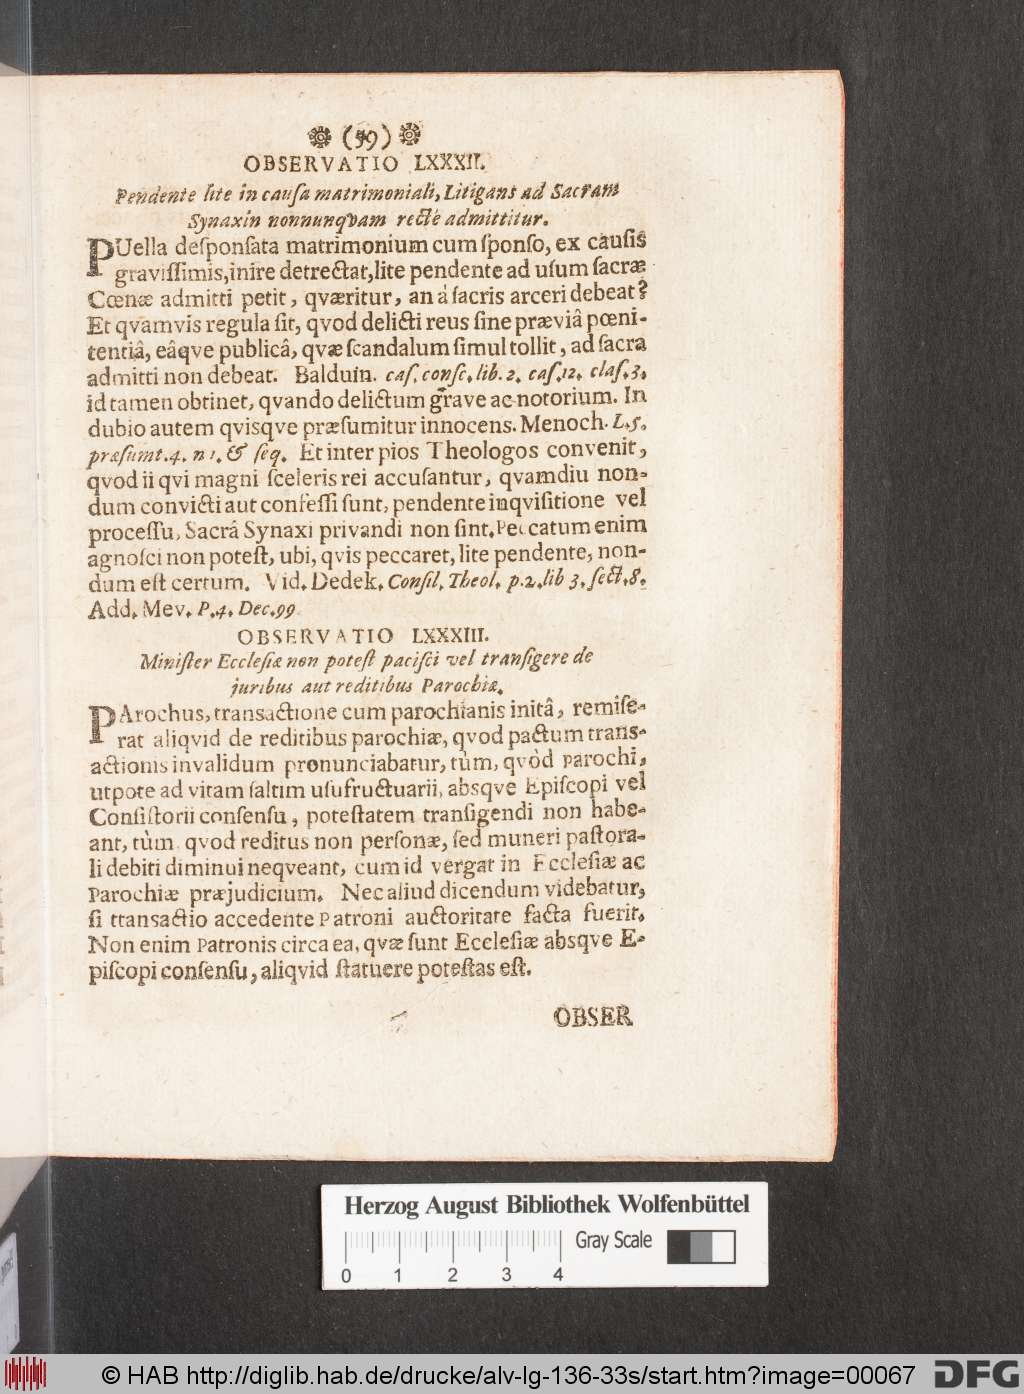 (59)
OBSERVATIO LXXXII.
Pendente lite in cauſa matrimoniali, Litigans ad Sacram
Synaxin nonnunqvam rectè admittitur.
PUella deſponſata matrimonium cum ſponſo, ex cauſis
graviſſimis, inire detrectat, lite pendente ad uſum ſacræ
Cœnæ admitti petit, qværitur, an â ſacris arceri debeat?
Et qvamvis regula ſit, qvod delicti reus ſine præviâ pœni-
tentiâ, eâqve publicâ, qvæ ſcandalum ſimul tollit, ad ſacra
admitti non debeat. Balduin. caſ. conſc. lib. 2. caſ. 12. claſ. 3.
id tamen obtinet, qvando delictum grave ac notorium. In
dubio autem qvisqve præſumitur innocens. Menoch. L. 5.
præſumt. 4. n 1. & ſeq. Et inter pios Theologos convenit,
qvod ii qvi magni ſceleris rei accuſantur, qvamdiu non-
dum convicti aut confeſſi ſunt, pendente inqviſitione vel
proceſſu, Sacrâ Synaxi privandi non ſint. Peccatum enim
agnoſci non poteſt, ubi, qvis peccaret, lite pendente, non-
dum eſt certum. Vid. Dedek. Conſil. Theol. p. 2. lib 3. ſect. 8.
Add. Mev. P. 4. Dec. 99
OBSERVATIO LXXXIII.
Miniſter Eccleſiæ non poteſt paciſci vel tranſigere de
juribus aut reditibus Parochiæ.
PArochus, transactione cum parochianis initâ, remiſe-
rat aliqvid de reditibus parochiæ, qvod pactum trans-
actionis invalidum pronunciabatur, tùm, qvòd parochi,
utpote ad vitam ſaltim uſufructuarii, absqve Epiſcopi vel
Conſiſtorii conſenſu, poteſtatem tranſigendi non habe-
ant, tùm qvod reditus non perſonæ, ſed muneri paſtora-
li debiti diminui neqveant, cum id vergat in Eccleſiæ ac
Parochiæ præjudicium. Nec aliud dicendum videbatur,
ſi transactio accedente Patroni auctoritate facta fuerit.
Non enim Patronis circa ea, qvæ ſunt Eccleſiæ absqve E-
piſcopi conſenſu, aliqvid ſtatuere poteſtas eſt.
OBSER
Herzog August Bibliothek Wolfenbüttel
Gray Scale
0 1 2 3 4
© HAB http://diglib.hab.de/drucke/alv-lg-136-33s/start.htm?image=00067
DFG